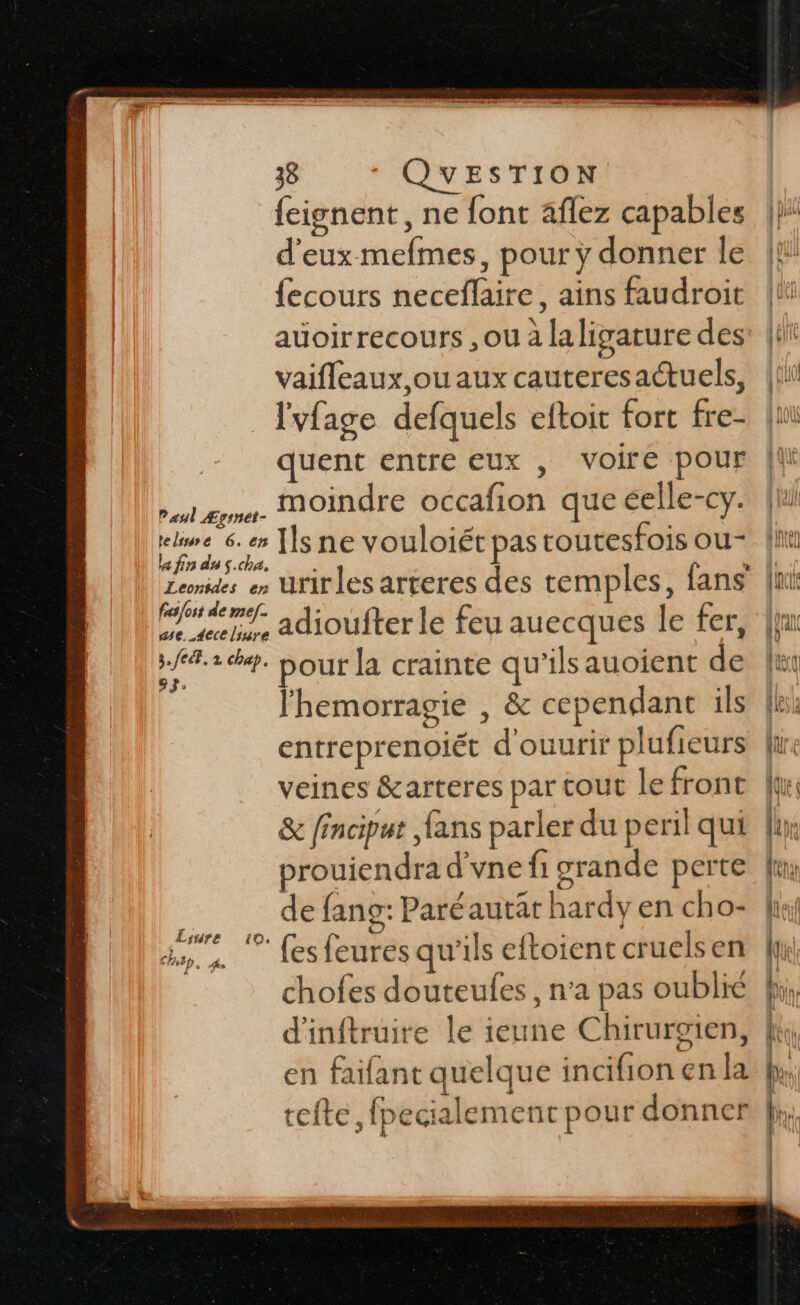 38 QVESTION
ſeignent, ne ſont aſſez capables
d'eux-meſmes, pour y donner le
ſecours neceſſaire, ains faudroit
auoir recours, ou à la ligature des
vaiſſeaux, ou aux cauteres actuels,
l'vſage deſquels eſtoit fort fre-
quent entre eux, voire pour
moindre occaſion que celle-cy.
Ils ne vouloiẽt pas toutesfois ou-
urir les arteres des temples, ſans
adiouſter le feu auecques le fer,
pour la crainte qu'ils auoient de
l'hemorragie, & cependant ils
entreprenoiẽt d'ouurir pluſieurs
veines & arteres par tout le front
& ſinciput, ſans parler du peril qui
prouiendra d'vne ſi grande perte
de ſang: Paré autãt hardy en cho-
ſes ſeures qu'ils eſtoient cruels en
choſes douteuſes, n'a pas oublié
d'inſtruire le ieune Chirurgien,
en faiſant quelque inciſion en la
teſte, ſpecialement pour donner
Paul Ægenet-
la fin du 5. cha.
Leonides en
3. ſect. 2 chap.
93.
Liure 10.
chap. 4.